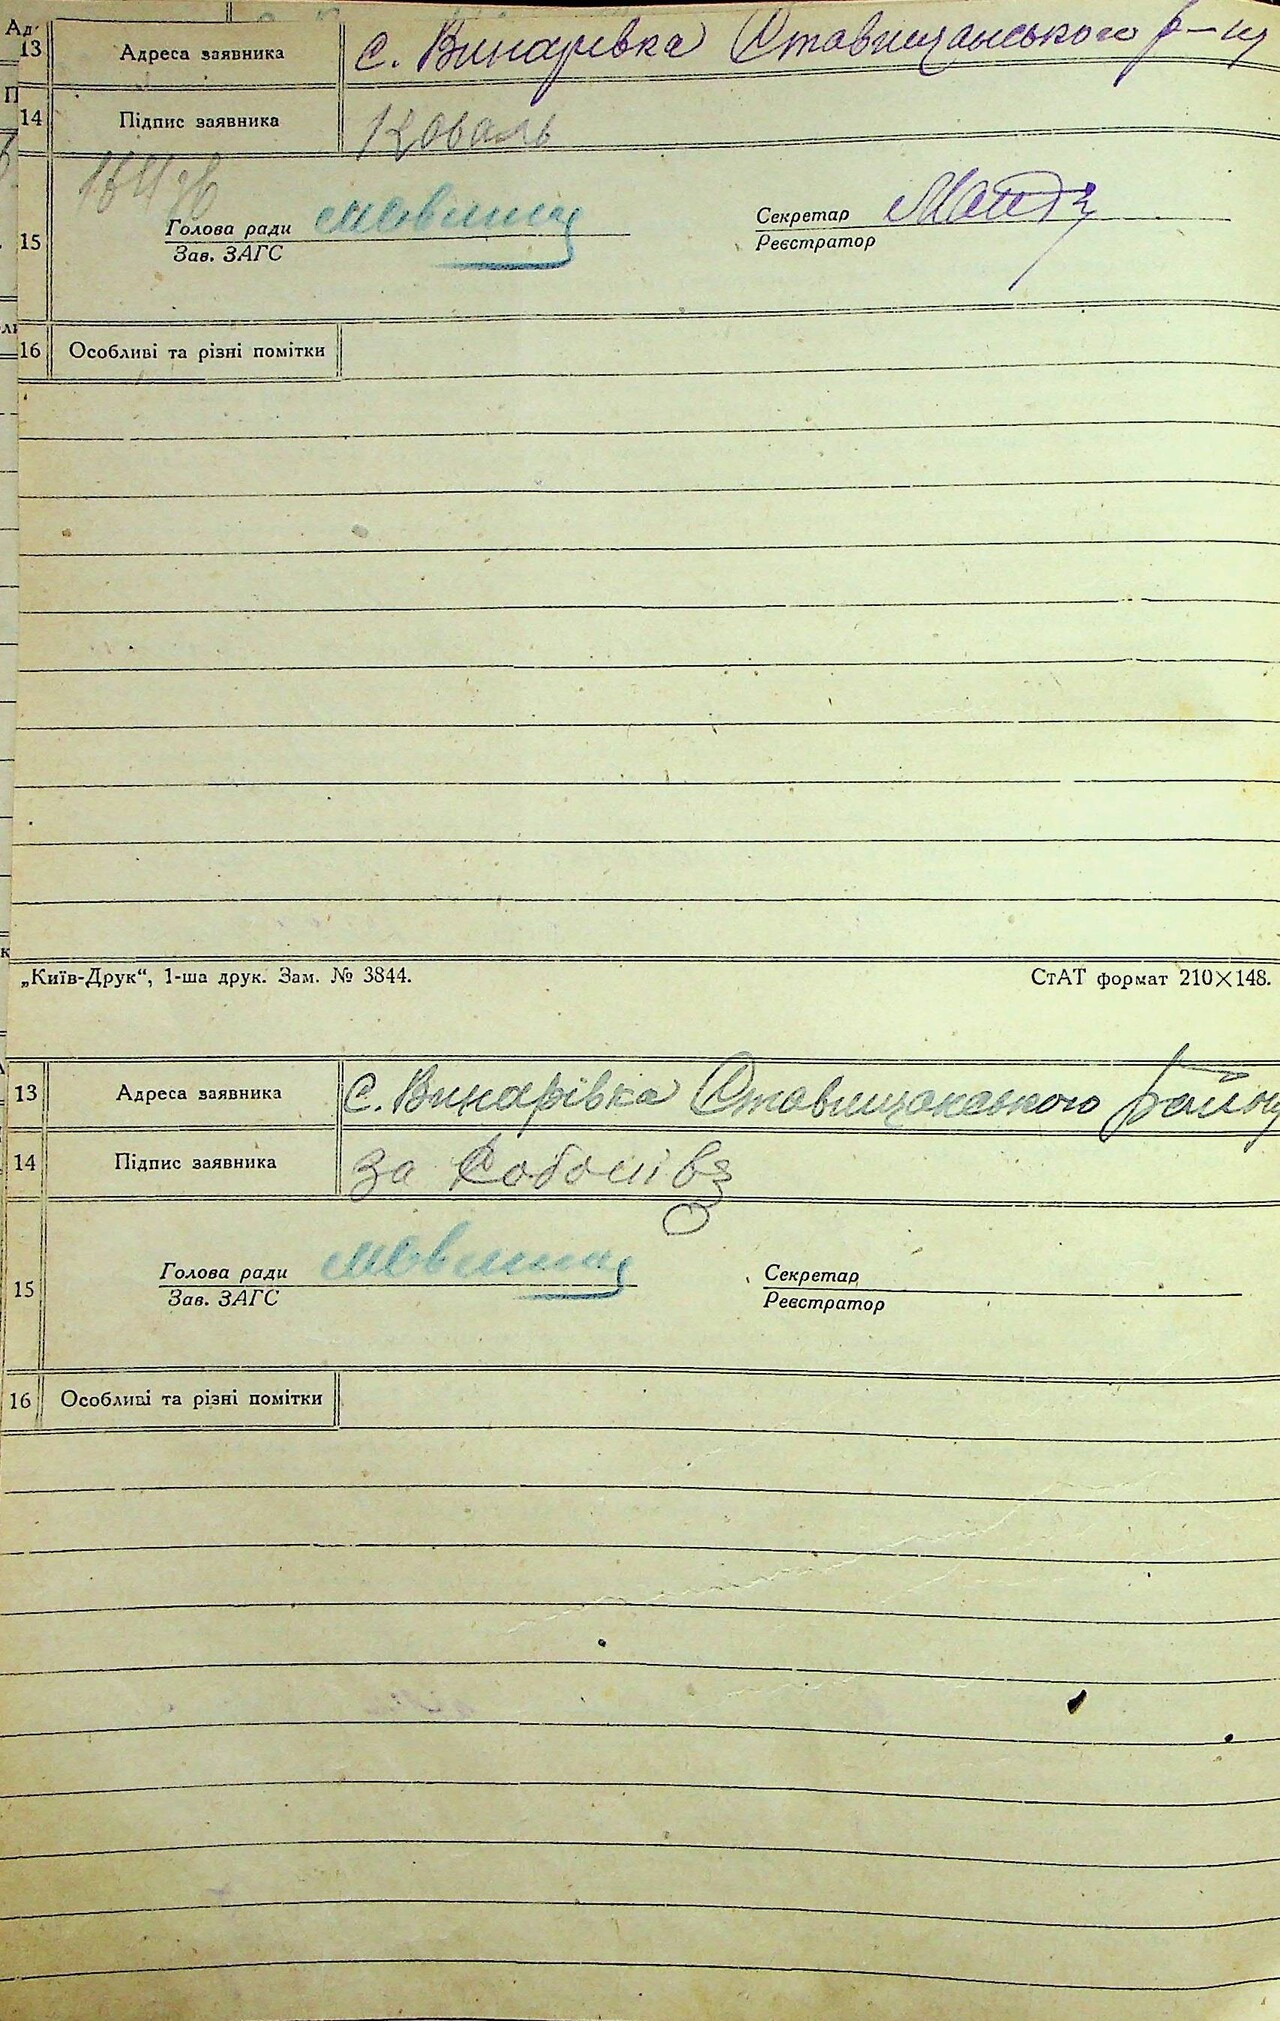 13 Адреса заявника с. Винарівка Ставищанського р-ну
14 Підпис заявника Коваль
15 Голова ради Секретар
Зав. ЗАГС Реєстратор
16 Особливі та різні помітки
„Київ-Друк“, 1-ша друк. Зам. № 3844. СтАТ формат 210×148.
13 Адреса заявника с. Винарівка Ставищанського району
14 Підпис заявника за
15 Голова ради Секретар
Зав. ЗАГС Реєстратор
16 Особливі та різні помітки